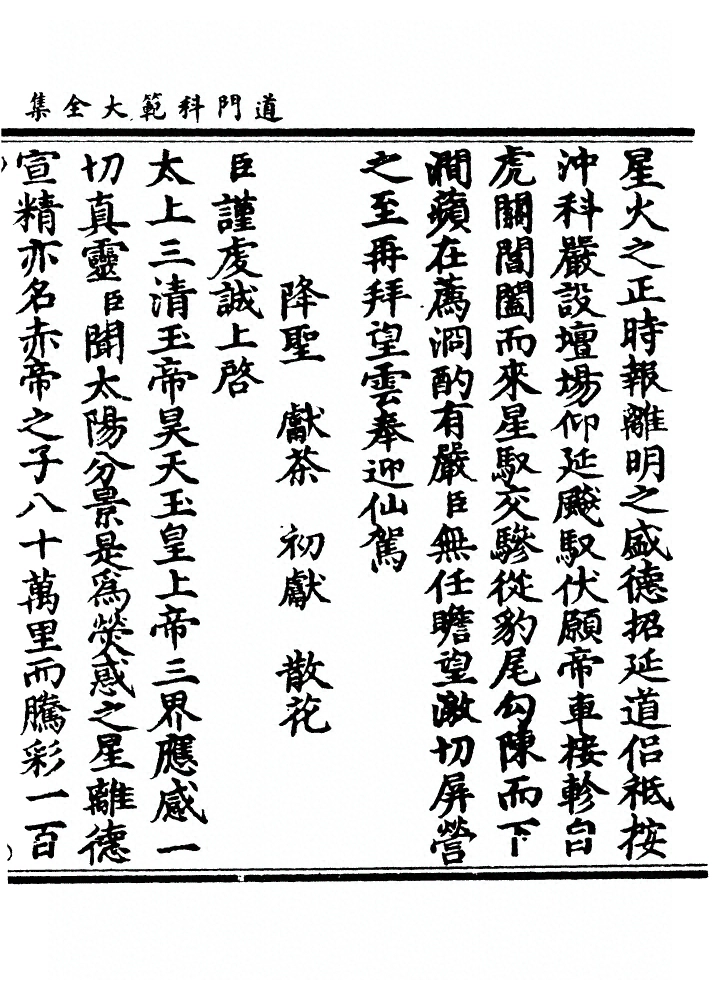 道門科範大全集
星火之正時報離明之盛德招延道侶祗按
沖科嚴設壇場仰延飈馭伏願帝車接軫自
虎關閶闔而來星馭交驂從豹尾勾陳而下
澗蘋在薦泂酌有嚴臣無任瞻望激切屏營
之至再拜望雲奉迎仙駕
降聖　獻茶　初獻　散花
臣謹虔誠上啓
太上三清玉帝昊天玉皇上帝三界應感一
切真靈臣聞太陽分景是為熒惑之星離德
宣精亦名赤帝之子八十萬里而騰彩一百